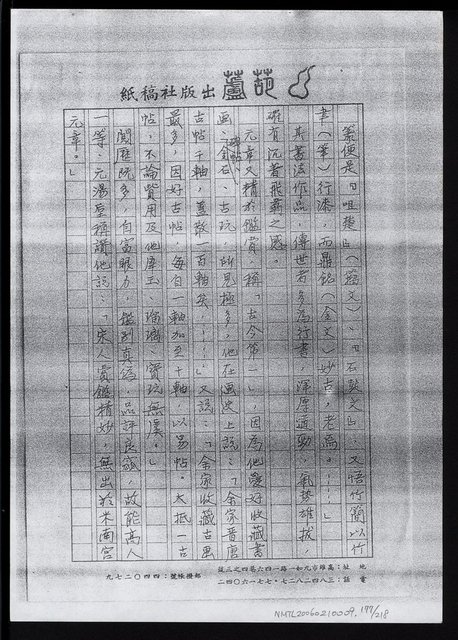 葫蘆出版社稿紙
篆便是「咀楚」(籀文)、「石鼓文」，又悟竹簡以竹
書(筆)行漆，而鼎銘(金文)妙古，老焉。……」
其書法作品，傳世者多為行書，渾厚遒勁，氣勢雄拔，
確有沉著飛翥之感。
元章又精於鑑賞，稱「古今第一」，因為他愛好收藏書
画、碑帖、金石、古玩，所見極多，他在画史上說：「余家晉唐
古帖千軸，蓋散一百軸矣……」又說：「余家收藏古畫
最多，因好古帖，每自一軸加至十軸，以易帖。大抵一古
帖，不論貲用及他犀玉、瑠璃、寶玩無慮。」
閱歷既多，自富眼力，鑑別真偽，品評良窳，故能高人
一等，元湯垕稱讚他說：「宋人賞鑑精妙，無出於米南宮
元章。」
地址：高雄市九如一路一四六巷四之三號
電話：三八四二八二七·七七一六〇四二
郵撥帳號：四四〇二七九
NMTL20060210009. 197/218